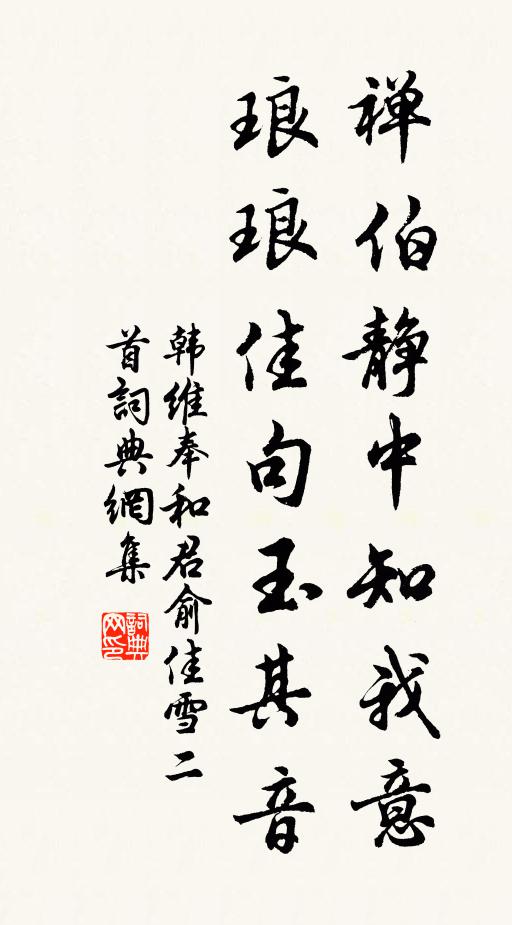 禅伯静中知我意
琅琅佳句玉其音
韩维奉和君俞佳雪二
首詞典網集
詞典
网印